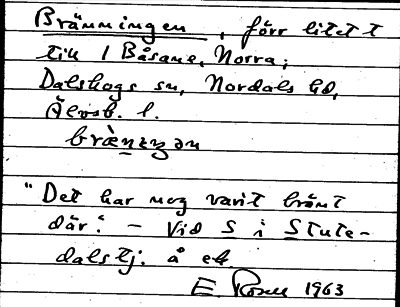 Bränningen, förr litet t
till 1 Båsane, Norra;
Dalskogs sn, Nordals hd,
Älvsb. l.
"Det har nog varit bränt
där." – Vid S i Stute-
dalstj. å ek
E. Rosell 1963